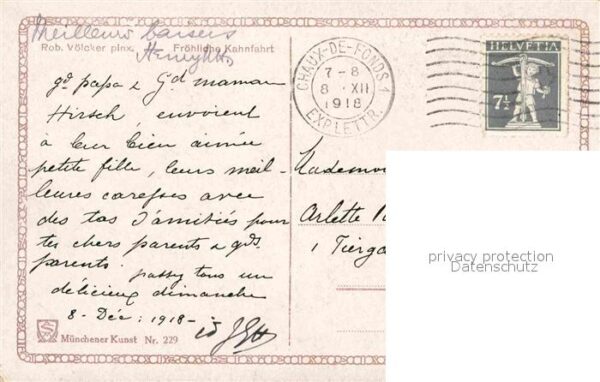 Meilleurs baisers
Rob. Völcker pinx. Fröhliche Kahnfahrt
gd papa & Gd maman
Hirsch, envoient
à leur bien aimée
petite fille, leurs meil-
leures caresses avec
des tas d'amitiés pour
tes chers parents & gds
parents. passez tous un
délicieux dimanche
8 - Déc : 1918 -
Münchener Kunst Nr. 229
CHAUX-DE-FONDS 1
7 - 8
8 . XII
1918
EXP. LETTR.
HELVETIA
7½
Mademoi
Arlette
1 Tierga
privacy protection
Datenschutz